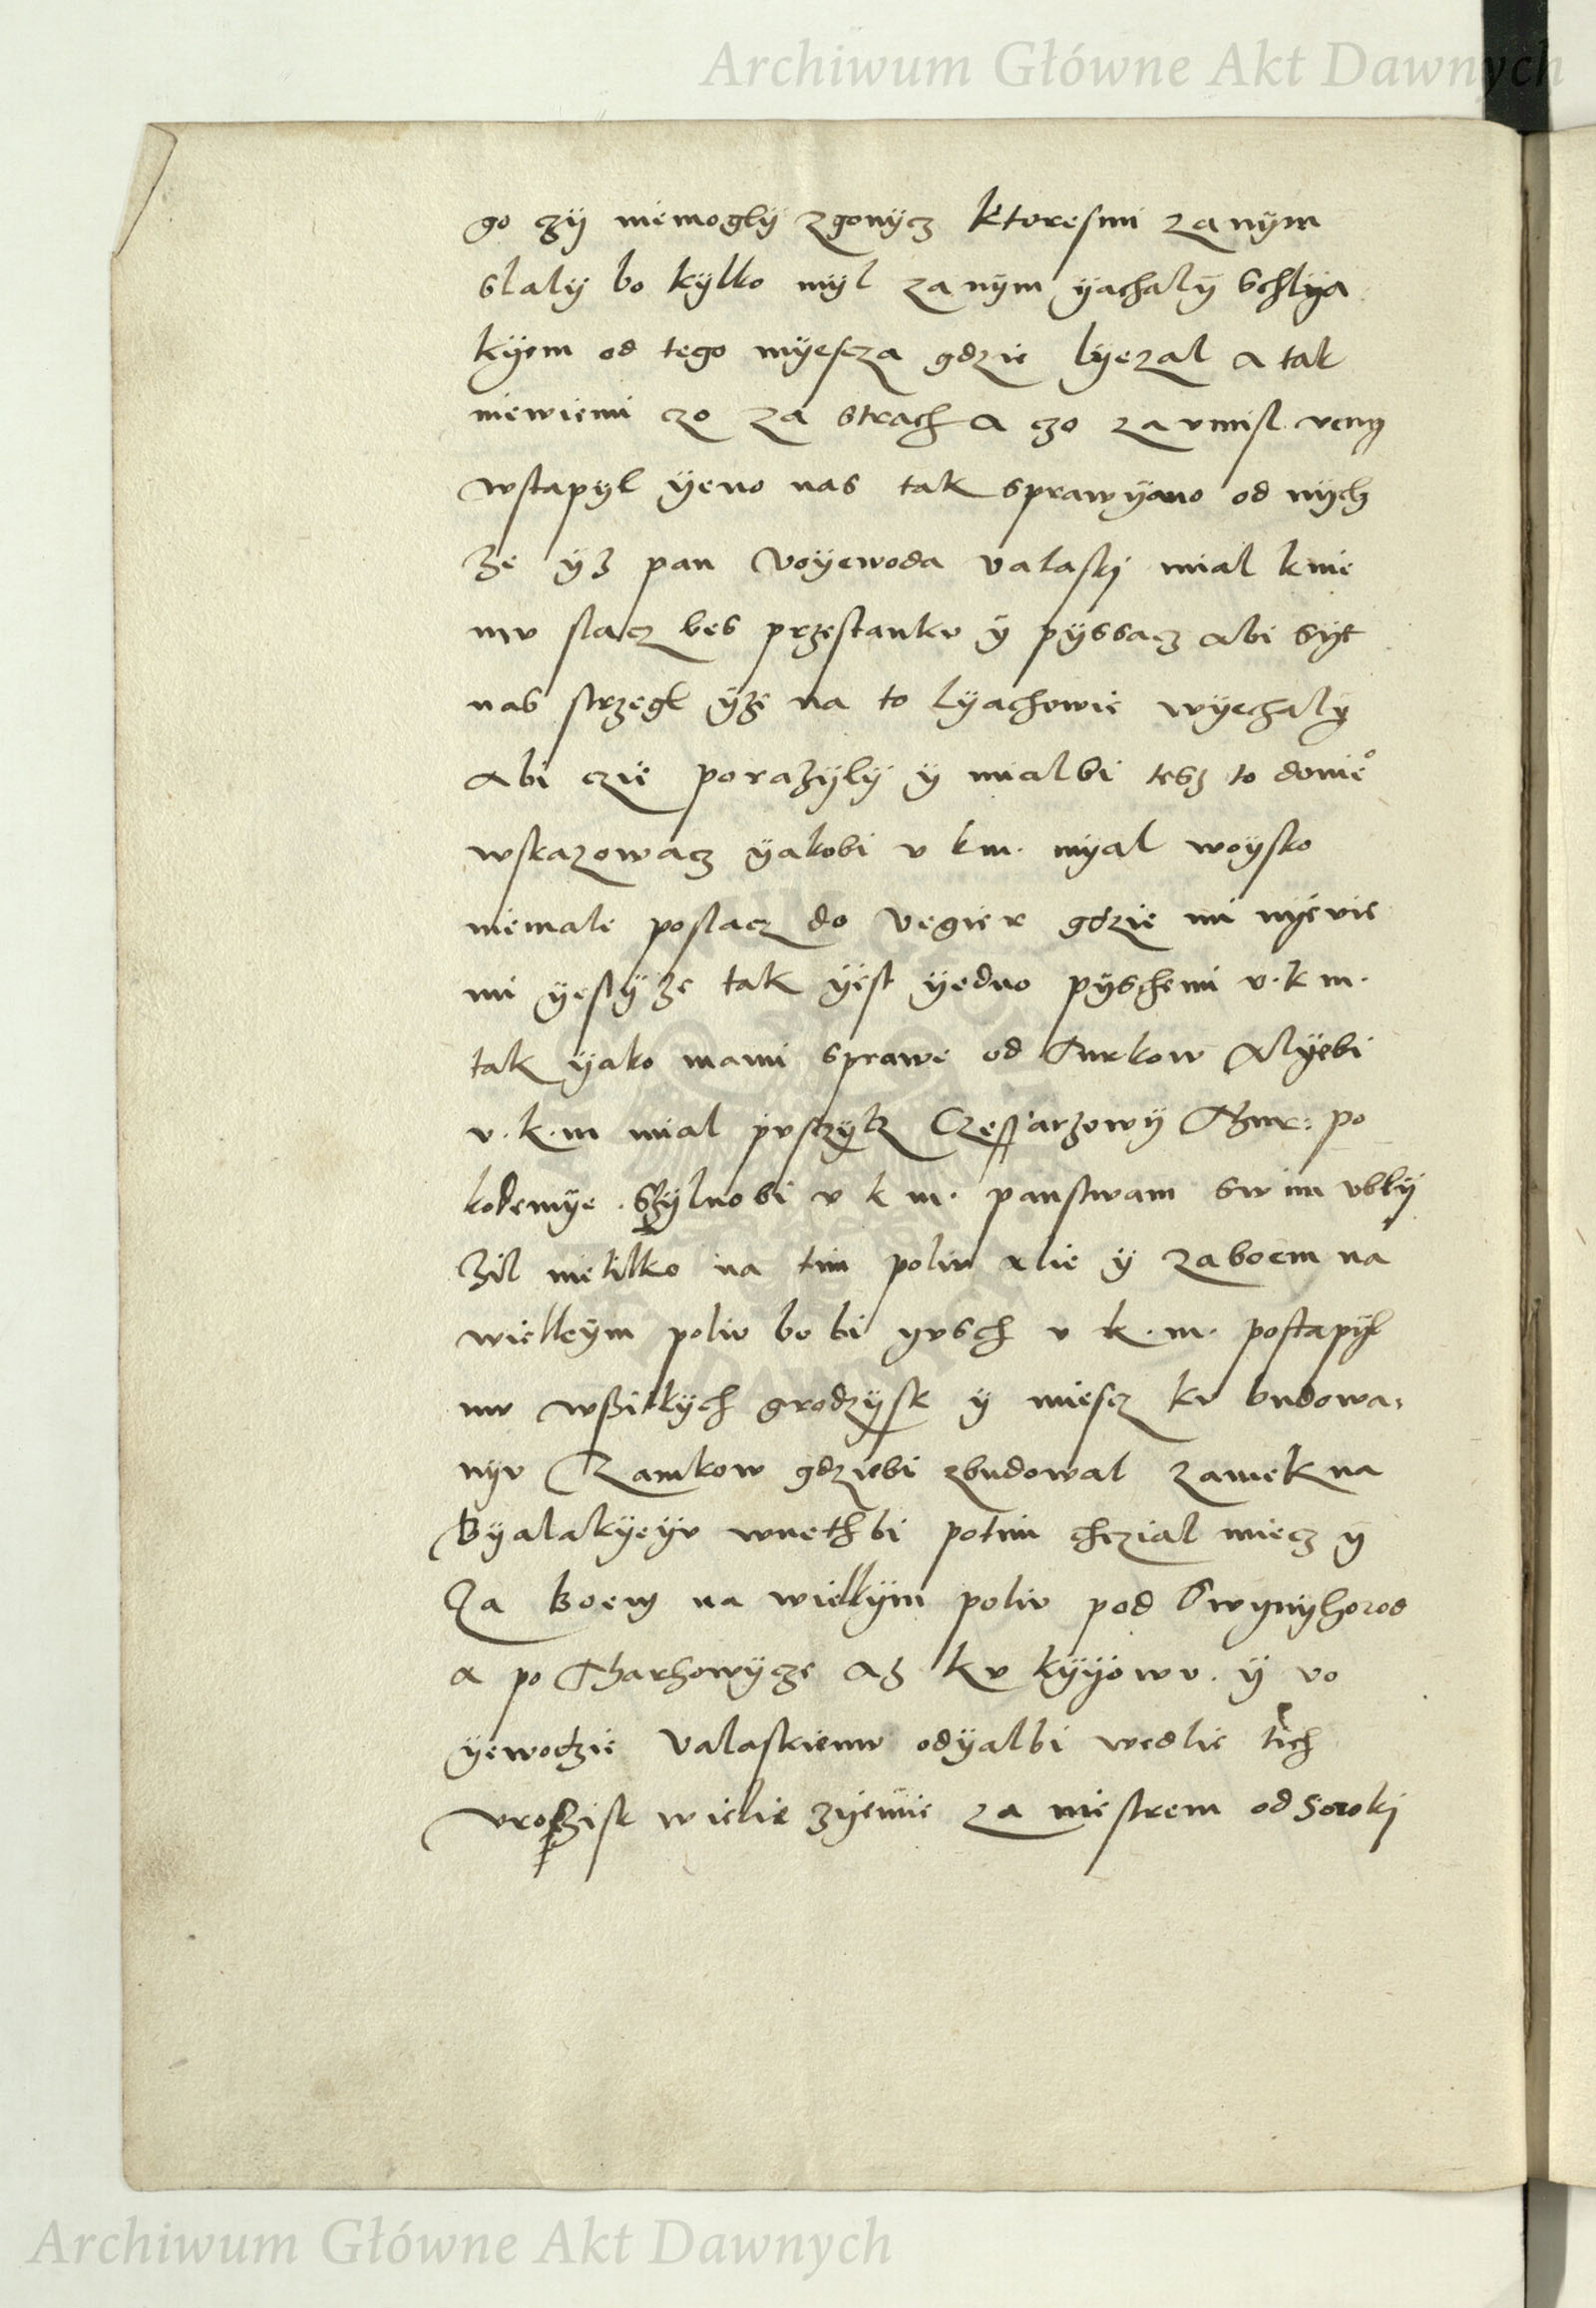 Archiwum Główne Akt Dawnych
go czÿ niemoglÿ zgonÿcz ktoresmi zanÿm
slalÿ bo kÿlko mÿl zanÿm ÿachalÿ schlÿa
kÿem od tego mÿescza gdzie lÿezal a tak
niewiemi czo za strach a czo za vmisl wenÿ
wstapÿl ÿeno nas tak sprawÿano od nÿch
ze ÿz pan voÿewoda valaskj mial knie
mv slacz bes przestankv ÿ pÿssacz abi sÿe
nas strzegl ÿze na to lÿachowie wÿechalÿ
abi czie porazÿlÿ ÿ mialbi tesz to donieº
wskazowacz ÿakobi v km. mÿal woÿsko
niemale poslacz do vegier gdzie mi nÿevie
mi ÿeslÿ ze tak ÿest ÿedno pÿschemi v.k m.
tak ÿako mami sprawe od Turkow Alÿebi
v.k.m mial pvsczÿcz Czessarzowÿ Thur: po
kodemÿe. Sszÿlno bi v k m. panstwam swim vblÿ
zil nietilko na tim poliv alie ÿ zaboem na
wielkeÿm poliv bo bi gvsch v k.m. postapÿl
mv wssitkÿch grodzÿsk ÿ miescz kv budowa:
nÿv Zamkow gdziebi zbudowal zamek na
Bÿalakÿeÿv wnethbi potim chczial miecz ÿ
Za Boem na wielkÿm poliv pod Swÿnÿhorod
a po Tharhowÿcze az kv kÿÿowv. ÿ vo
ÿewodzie valaskiemv odÿalbi wedlie tich
vroczisk wielie zÿemie za niestrem od Soroki
Archiwum Główne Akt Dawnych